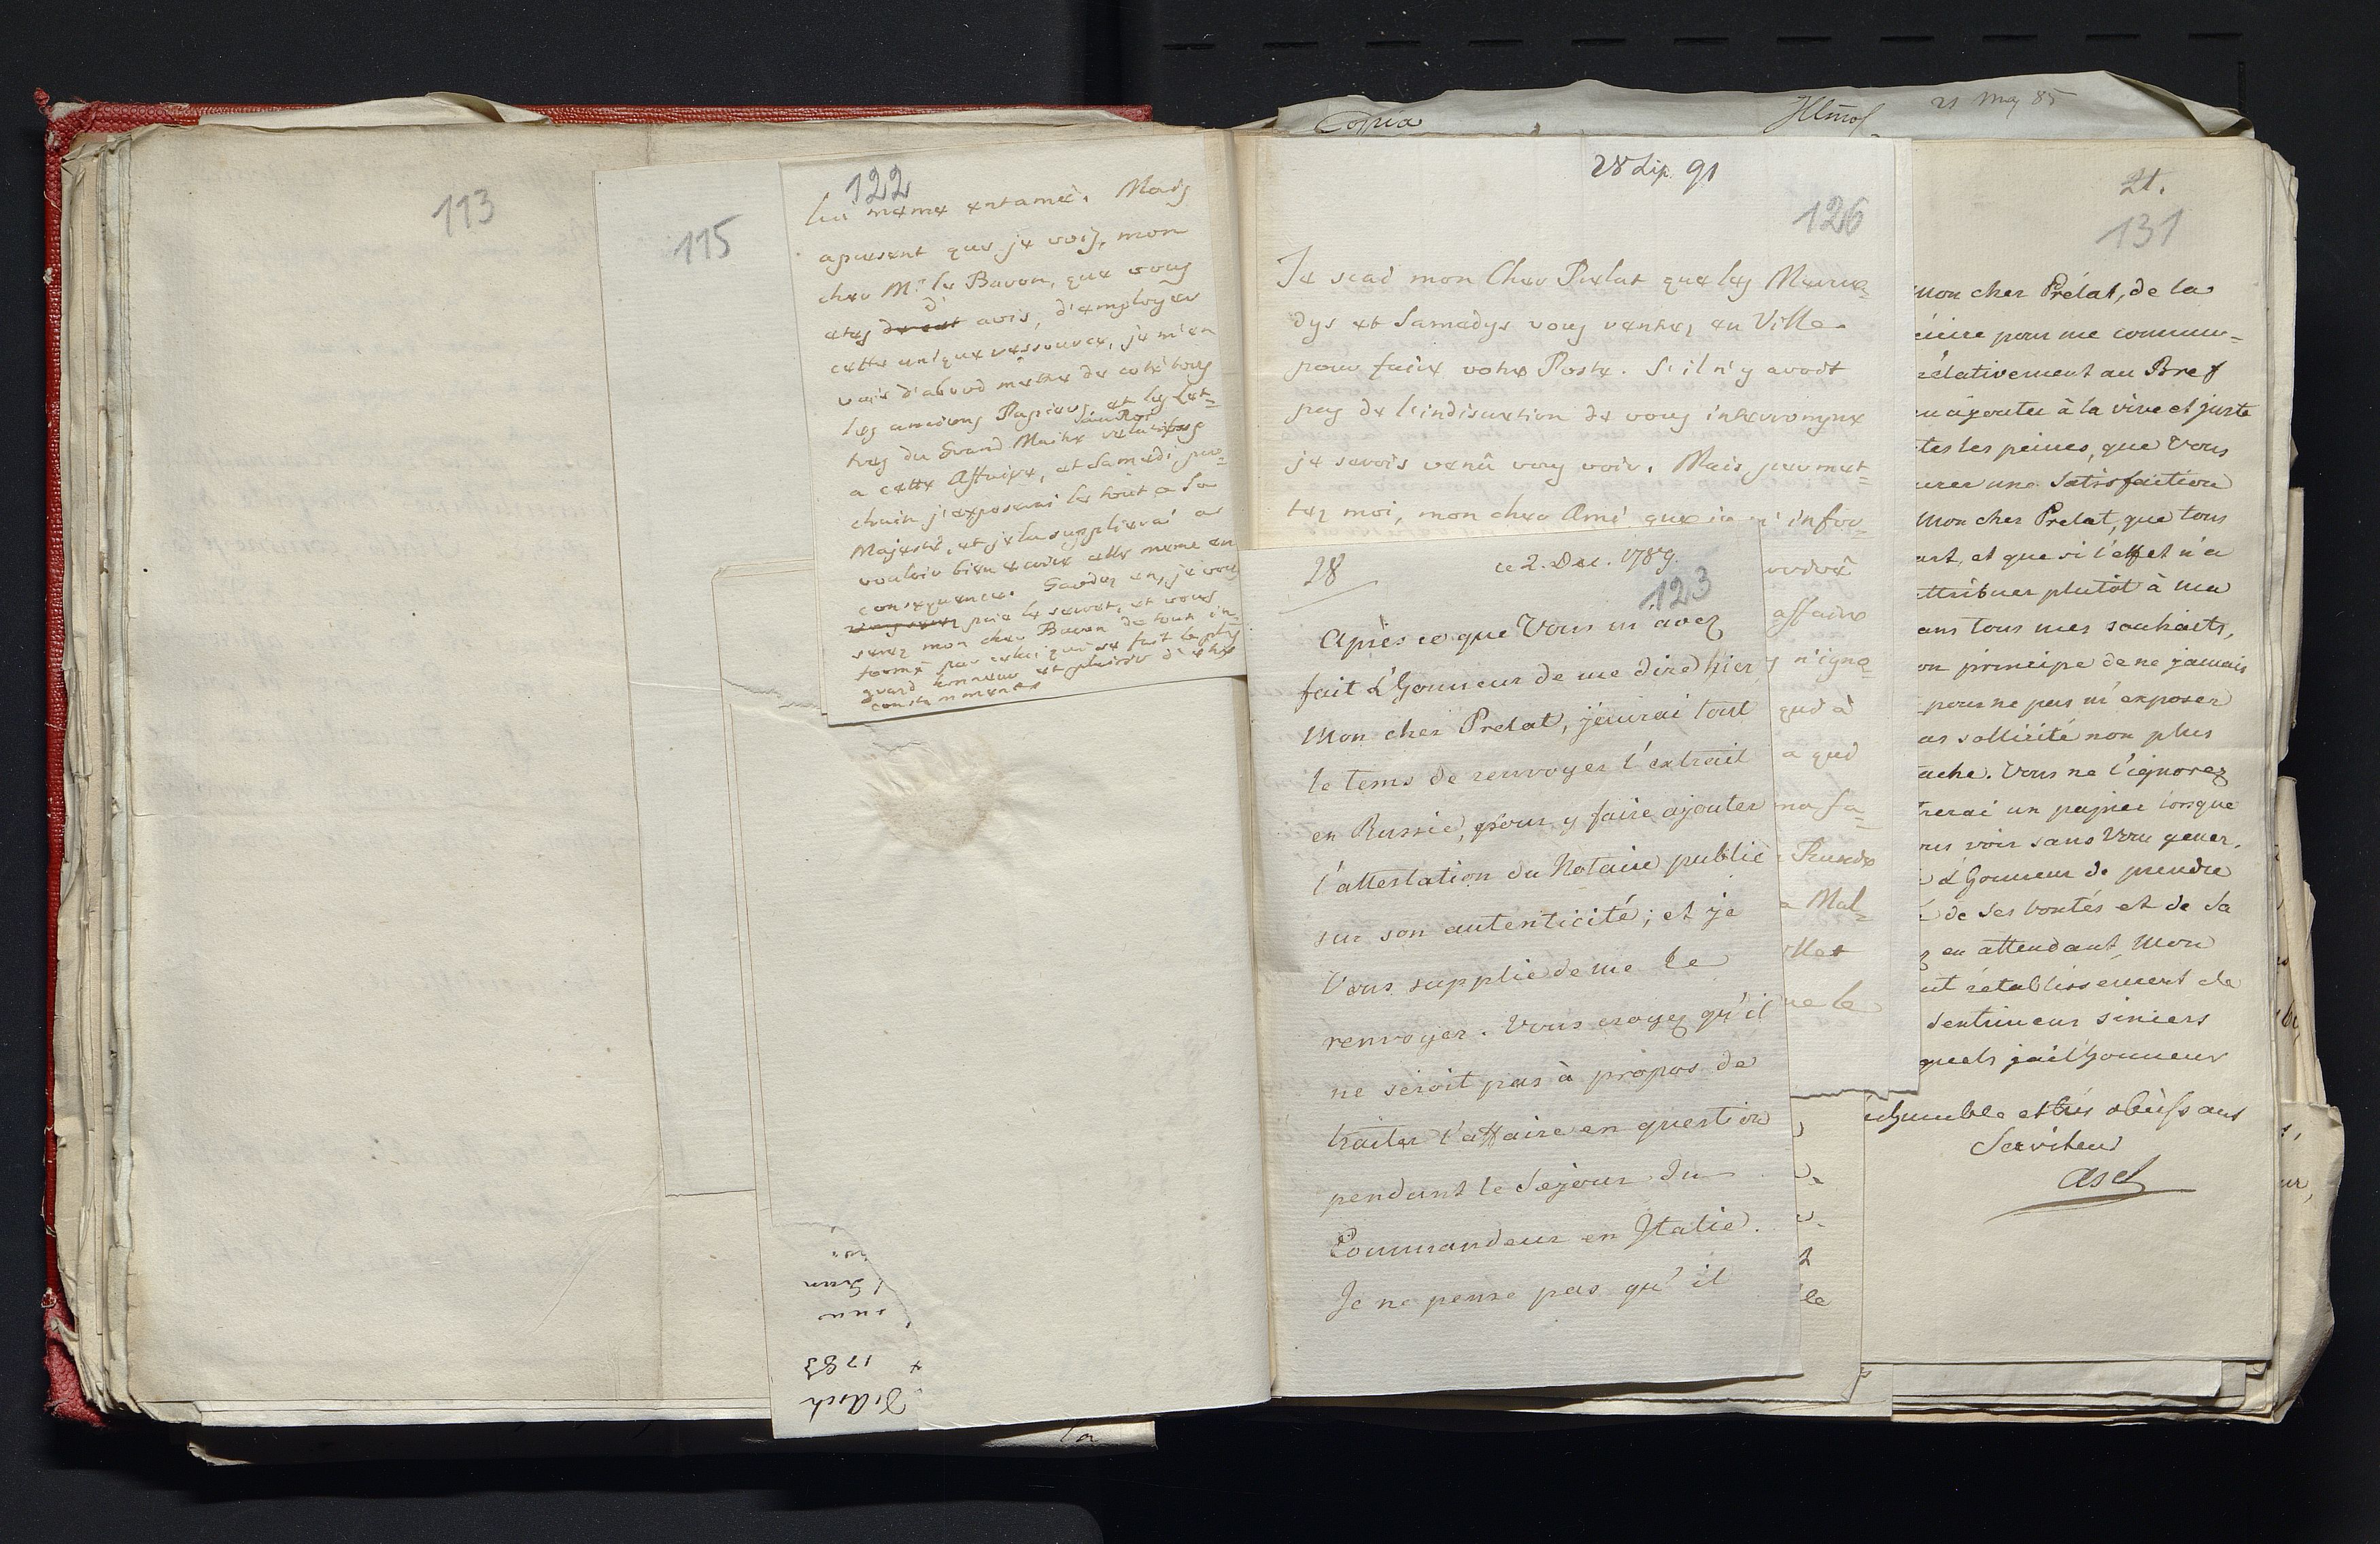 113
115
122
lui meme entamé. Mais
apresent que je vois, mon
cher Mr. le Baron, que vous
d'
etes de cet avis, d'employer
cette unique ressource, je m'en
vais d'abord mettre de coté tous
les anciens Papiers et les Let=
au Roi
tres du Grand Maitre relatifs
a cette Affaire, et Samedi pro=
chain j'exposerai le tout a Sa
Majesté, et je la supplierai de
vouloir bien ecrire elle meme en
consequence. Gardez en, je vous
prie le secret, et vous
serez mon cher Baron de tout in=
formé par celui qui se fait le plus
grand honneur et plaisir d'etre
constamment
1783
d'Asch
la
Copia
Illmo
21 May 85
28 Lip. 91
126
Je scai mon Cher Prelat que les Mercre=
dys et Samedys vous rentrez en Ville
pour faire votre Poste. S'il n'y avoit
pas de l'indiscretion de vous interrompre
je serois venû vous voir. Mais permet=
tez moi, mon cher Ami que je m'infor=
affaire
n'igno=
qui à
a qui
ma fa=
a Mal=
ne le
28
ce 2. Dec. 1789.
123
Après ce que Vous m'avez
fait L'Honneur de me dire hier,
Mon cher Prelat, j'aurai tout
le tems de renvoyer l'extrait
en Russie, pour y faire ajouter
l'attestation du Notaire public
sur son autenticité; et je
Vous supplie de me le
renvoyer. Vous croyez qu'il
ne seroit pas à propos de
traiter l'affaire en question
pendant le Sejour du
Commandeur en Italie.
Je ne pense pas qu'il
le
21.
131
Mon cher Prélat, de la
pour me commu=
rélativement au Bref
ajouter à la vive et juste
tes les peines, que Vous
une Satisfaction
Mon cher Prelat, que tous
et que si l'effet n'a
attribuer plutôt à ma
ans tous mes souhaits,
principe de ne jamais
pour ne pas m'exposer
as sollicité non plus
ache. Vous ne l'ignorez
un papier lorsque
voir sans Vous gener.
L'Honneur de prendre
de Ses bontés et de Sa
en attendant, Mon
rétablissement de
sentimens sinceres
quels j'ai l'Honneur
humble et très obeissant
Serviteur
Asch